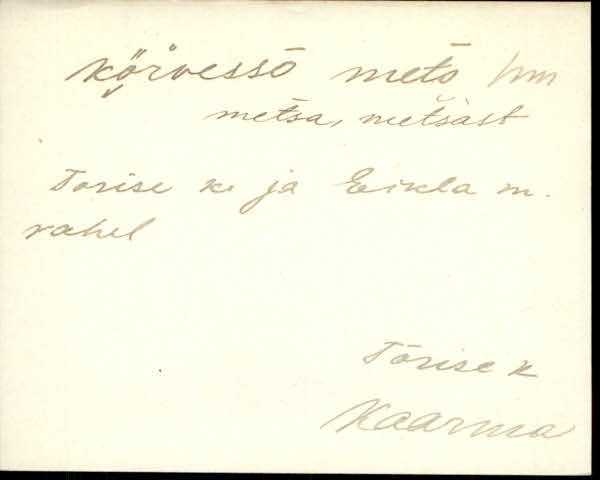 körvessō metō mm
metsa, metsast
Torise k. ja Eikla m.
vahel
Tōrise k
Kaarma